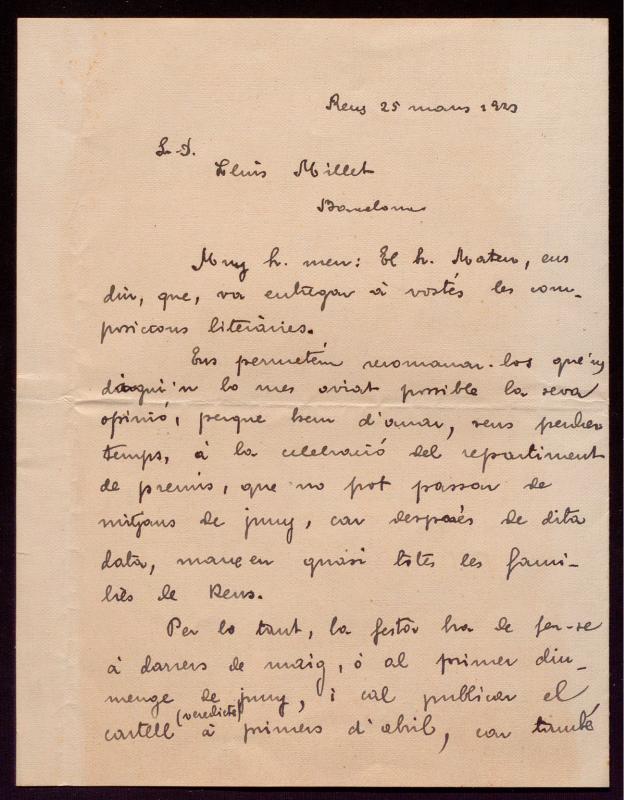 Reus 25 mars 1923
Sr. D.
Lluis Millet
Barcelona
Muy Sr. meu: El Sr. Mateu, ens
diu, que, va entregar á vostés les com-
posicions literàries.
Ens permetém recomanar-los que'ns
diguin lo mes aviat possible la seva
opinió, perque hem d'anar, sens perdre
temps, á la celebració del repartiment
de premis, que no pot passar de
mitjans de juny, car després de dita
data, marxen quasi totes les fami-
lies de Reus.
Per lo tant, la festa ha de fer-se
á darrers de maig, ó al primer diu-
menge de juny, i cal publicar el
cartell (veredicte) á primers d'abril, car també